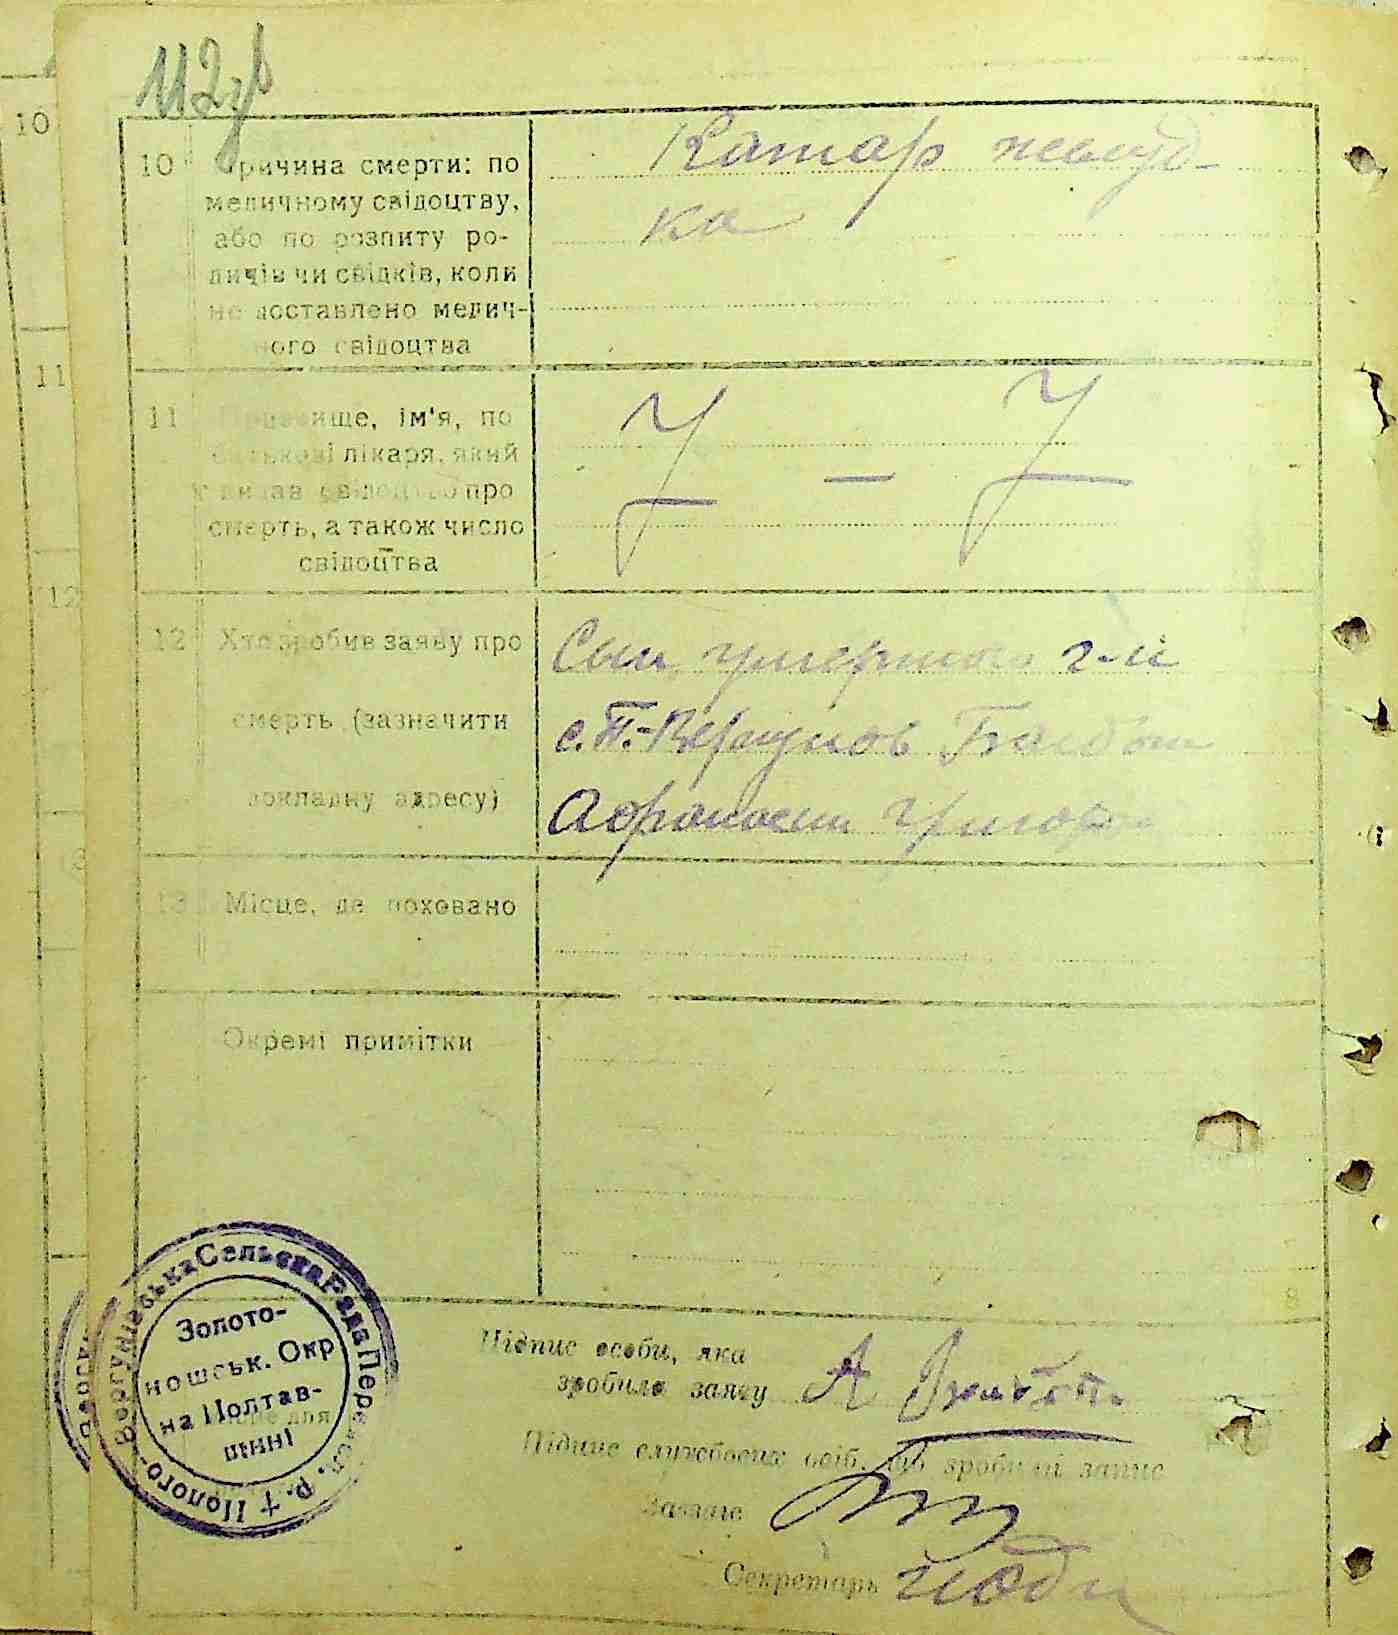 112зв
10
11
12
10
Причина смерти: по
медичному свідоцтву,
або по розпиту ро-
дичів чи свідків, коли
не доставлено медич-
ного свідоцтва
Катар желуд-
ка
11
Прізвище, ім'я, по
батькові лікаря, який
видав свідоцтво про
смерть, а також число
свідоцтва
12
Хто зробив заяву про
смерть (зазначити
докладну адресу)
Сын умершого г-н
с. П.-Вергунов
Афанасий Григор
13
Місце, де поховано
Окремі примітки
Пологo-Вергунівська Сельська Рада Переясл. р.
Золото-
ношськ. Окр
на Полтав-
щині
Підпис особи, яка
зробила заяву А
Підпис службових осіб, що зробили запис
Завзагс
Секретарь